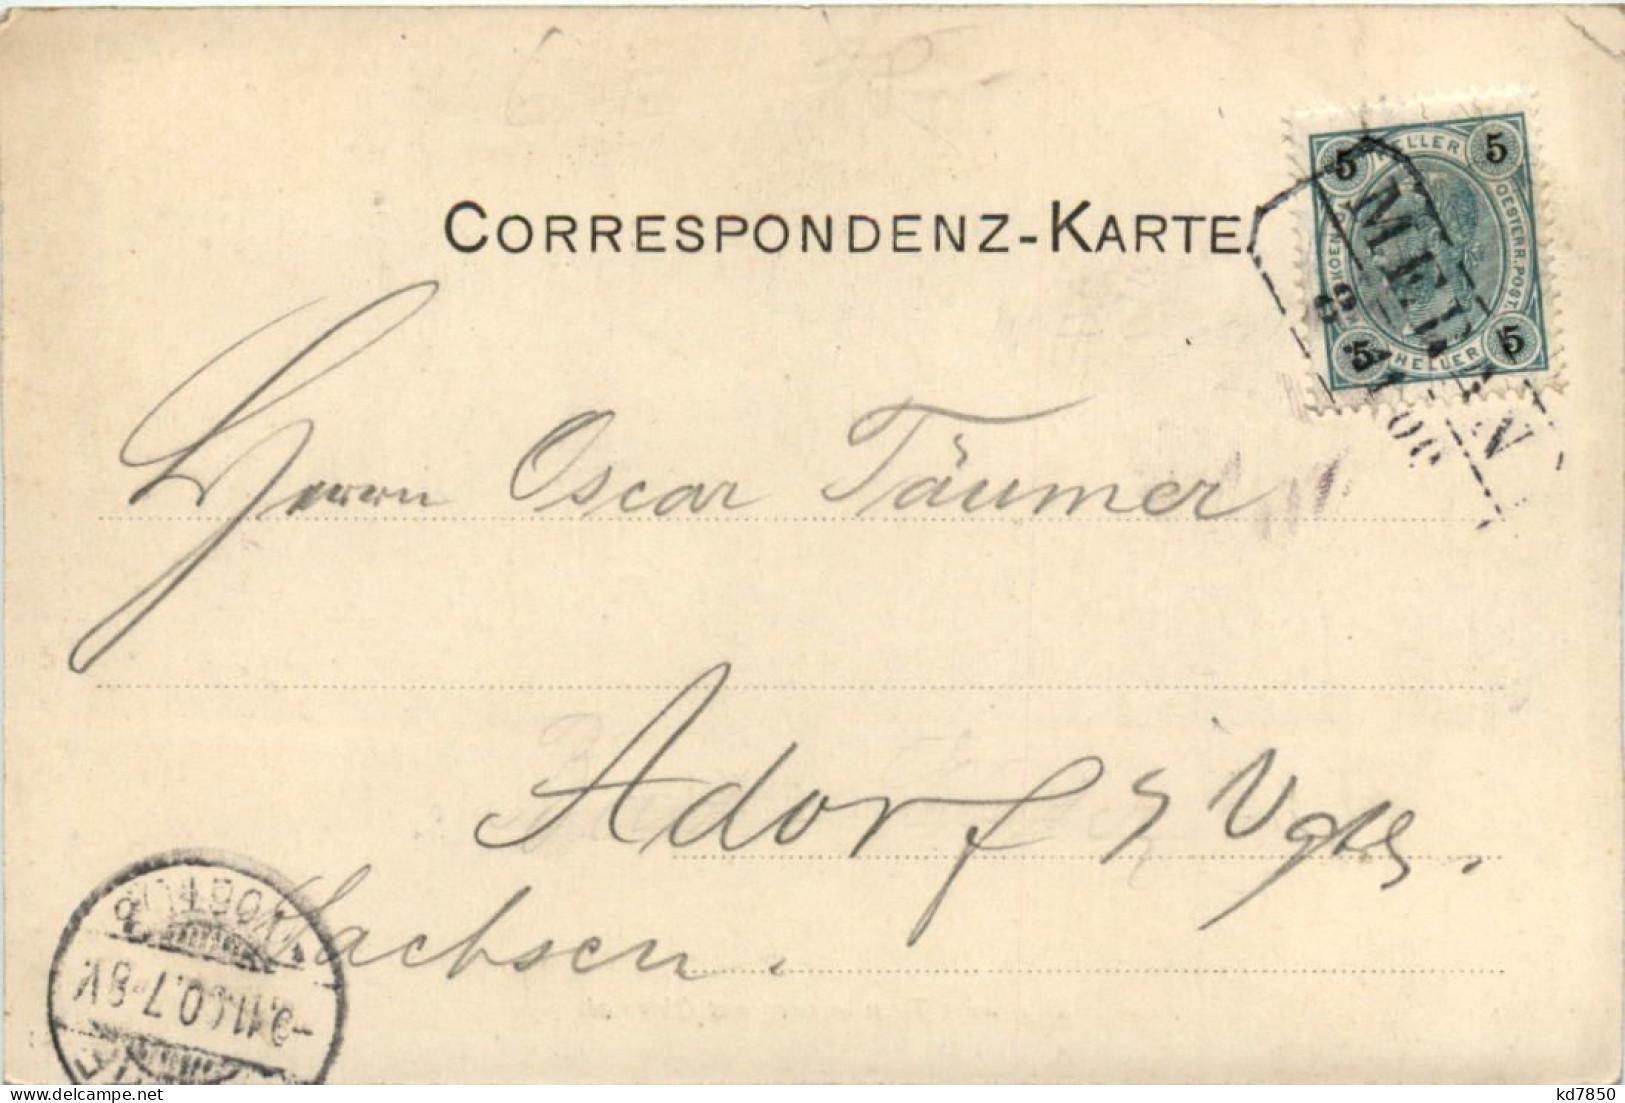 CORRESPONDENZ-KARTE.
5 HELLER 5
OESTERR. POST.
5 HELLER 5
8 11 00
Herrn Oscar Täumer
Adorf i/ Vgtl.
Sachsen.
-9.11.00.7-8V.
kd7850